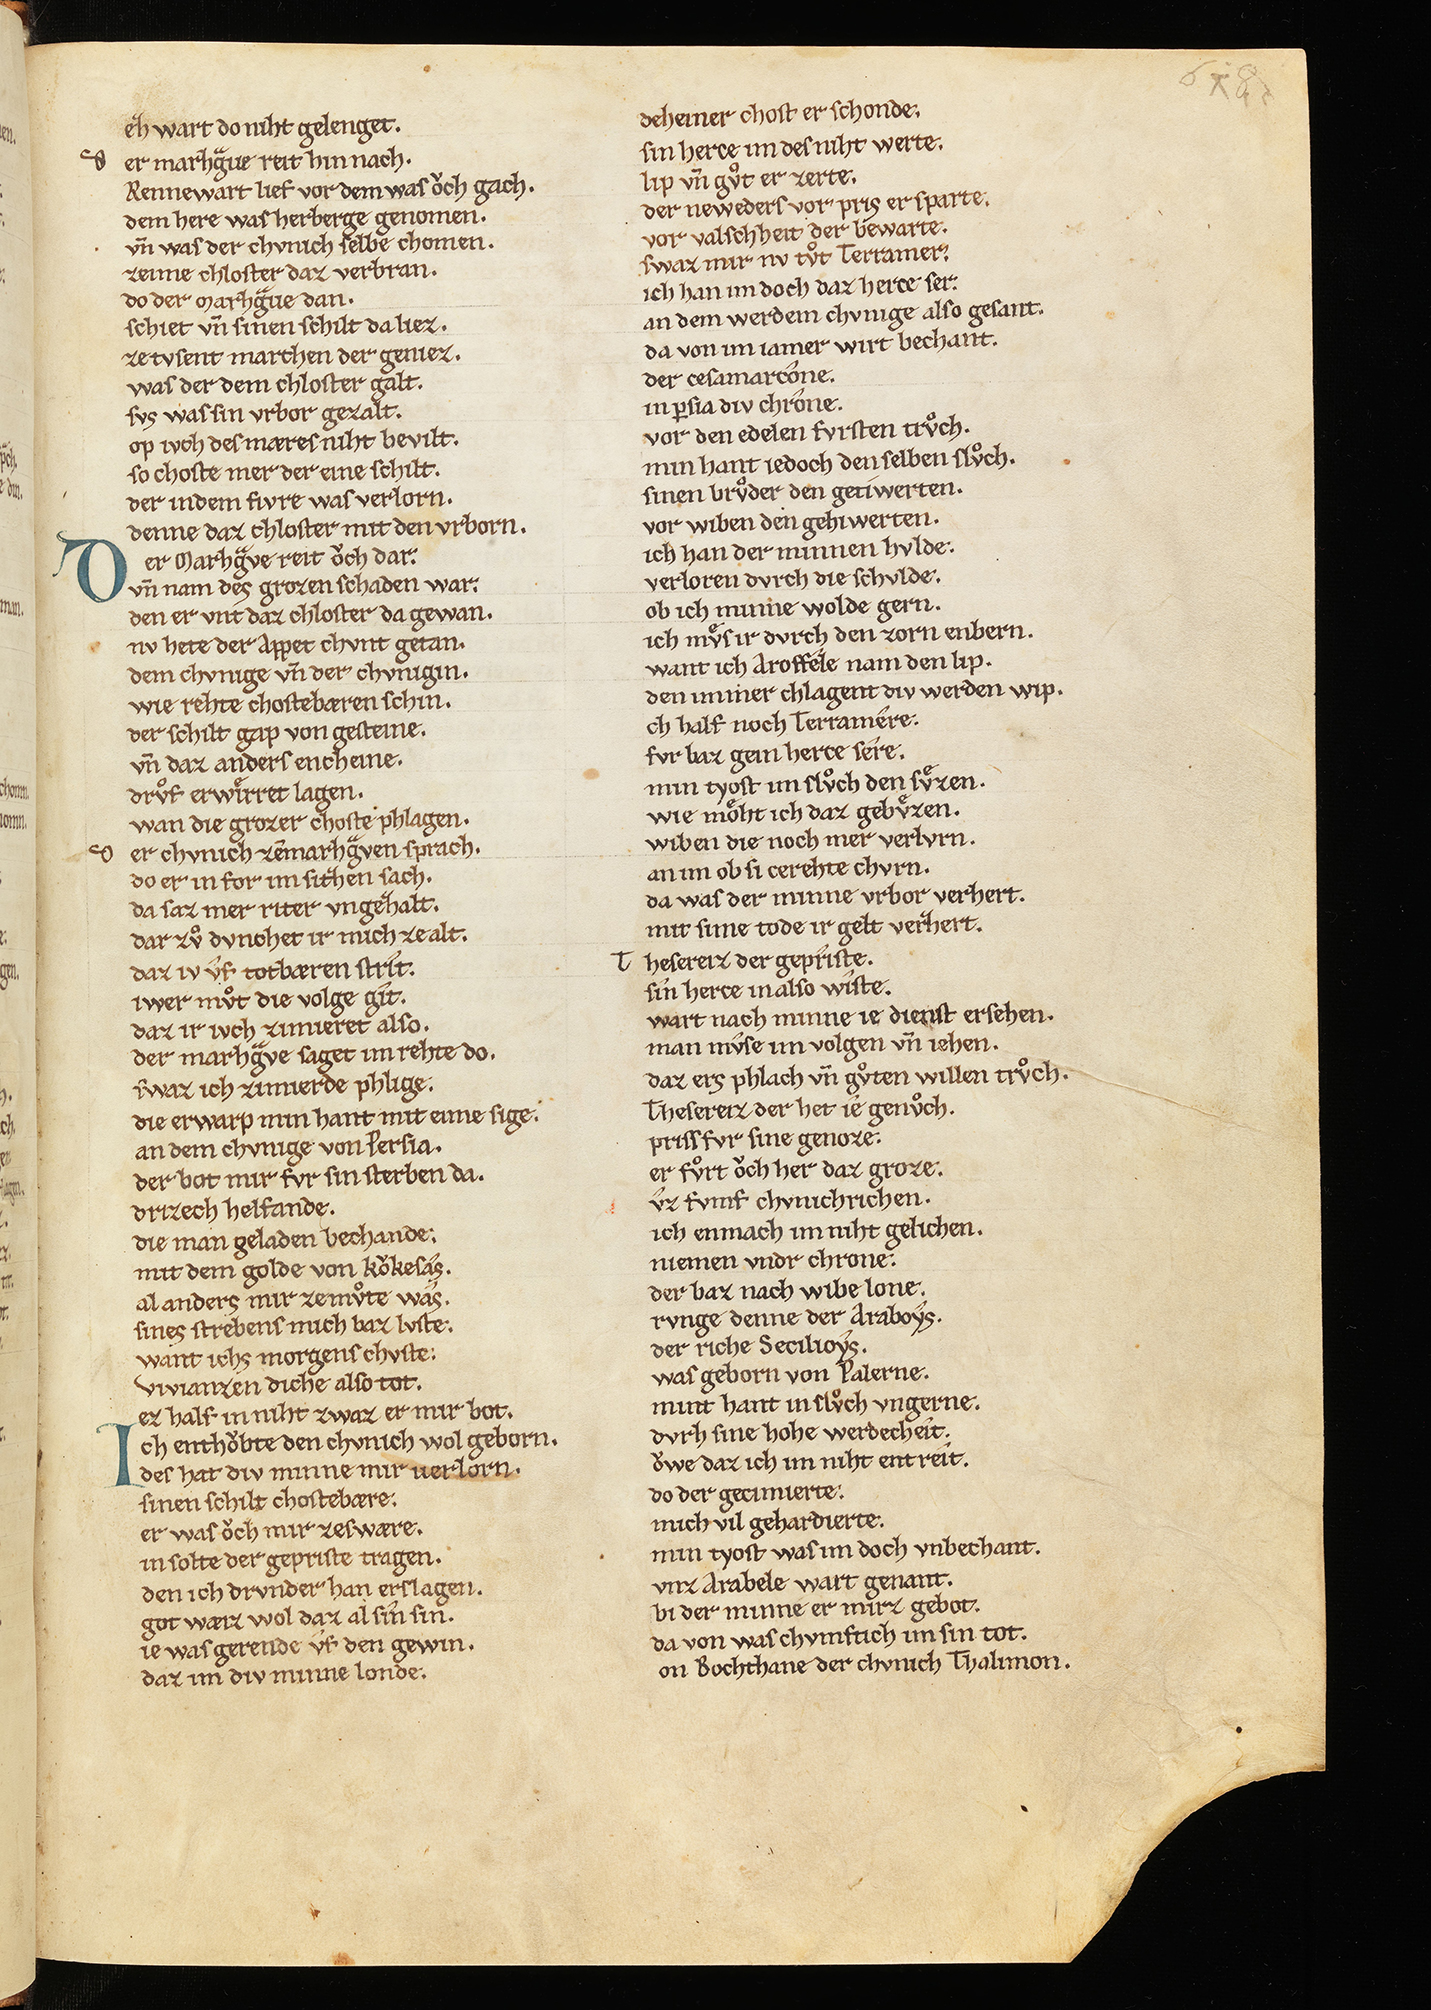 eh wart do niht gelenget.
d er marhgͣue reit hin nach.
Rennewart lief vor dem was oͮch gach.
dem here was herberge genomen.
vn̄ was der chvnich selbe chomen.
zeinne chloster daz verbran.
do der Marhgͣue dan.
schiet vn̄ sinen schilt da liez.
ze tvsent marchen der geniez.
was der dem chloster galt.
svs was sin vrbor gezalt.
op ivch des mæres niht bevilt.
so choste mer der eine schilt.
der indem fivre was verlorn.
denne daz chloster mit den vrborn.
Der Marhgͣve reit oͮch dar.
vn̄ nam des grozen schaden war.
den er vnt daz chloster da gewan.
nv hete der Appet chvnt getan.
dem chvnige vn̄ der chvnigin.
wie rehte chostebæren schin.
der schilt gap von gesteine.
vn̄ daz anders encheine.
drvͦf erwirret lagen.
wan die grozer choste phlagen.
d er chvnich zem̄arhgͣven sprach.
do er in for im sithen sach.
da saz mer riter vngehalt.
dar zvͦ dvnchet ir mich ze alt.
daz iv v́f totbæren strît.
iwer mvͦt die volge gît.
daz ir ivch zimieret also.
der marhgͣve saget im rehte do.
swaz ich zimierde phlige.
die erwarp min hant mit eime sige.
an dem chvnige von Persia.
der bot mir fvr sin sterben da.
drizech helfande.
die man geladen bechande.
mit dem golde von koͮkesás.
al anders mir zemvͦte wás.
sines strebens mich baz lvste.
want ichs morgens chvste.
vivianzen diche also tot.
ez half in niht zwaz er mir bot.
Ich enthoͮbte den chvnich wol geborn.
des hat div minne mir verlorn.
sinen schilt chostebære.
er was oͮch mir zeswære.
in solte der gepriste tragen.
den ich drvnder han erslagen.
got wæiz wol daz al sín sin.
ie was gerende v́f den gewin.
daz im div minne londe.
deheiner chost er schonde.
sin herce im des niht werte.
lip vn̄ gvͦt er zerte.
der neweders vor pris er sparte.
vor valschheit der bewarte.
swaz mir nv tvͦt Terramer.
ich han im doch daz herce ser.
an dem werdem chvnige also gesant.
da von im iamer wirt bechant.
der cesamarcóne.
in ꝑsia div chróne.
vor den edelen fvrsten trvͦch.
min hant iedoch den selben slvͦch.
sinen brvͦder den getiwerten.
vor wiben den gehiwerten.
ich han der minnen hvlde.
verloren dvrch die schvlde.
ob ich minne wolde gern.
ich mvͤs ir dvrch den zorn enbern.
want ich Aroffele nam den lip.
den immer chlagent div werden wip.
ch half noch Terramére.
fvr baz gein herce sére.
min tyost im slvͦch den svͤzen.
wie moͤht ich daz gebvͤzen.
wiben die noch mer verlvrn.
an im ob si cerehte chvrn.
da was der minne vrbor verhert.
mit sime tode ir gelt verhert.
T hesereiz der gepriste.
sín herce in also wîste.
wart nach minne ie dienst ersehen.
man mvse im volgen vn̄ iehen.
daz ers phlach vn̄ gvͦten willen trvͦch.
Thesereiz der het ie genvͦch.
priss fvr sine genoze.
er fvͦrt oͮch her daz groze.
v́z fvmf chvnichrichen.
ich enmach im niht gelichen.
niemen vndr chrone.
der baz nach wibe lone.
rvnge denne der Araboýs.
der riche Secilioýs.
was geborn von Palerne.
mint hant in slvͦch vngerne.
dvrh sine hohe werdecheit.
oͮwe daz ich im niht entreit.
do der gecimierte.
mich vil gehardierte.
min tyost was im doch vnbechant.
vnz Arabele wart genant.
bi der minne er mirz gebot.
da von was chvmftich im sin tot.
on Bochthane der chvnich Thalimon.